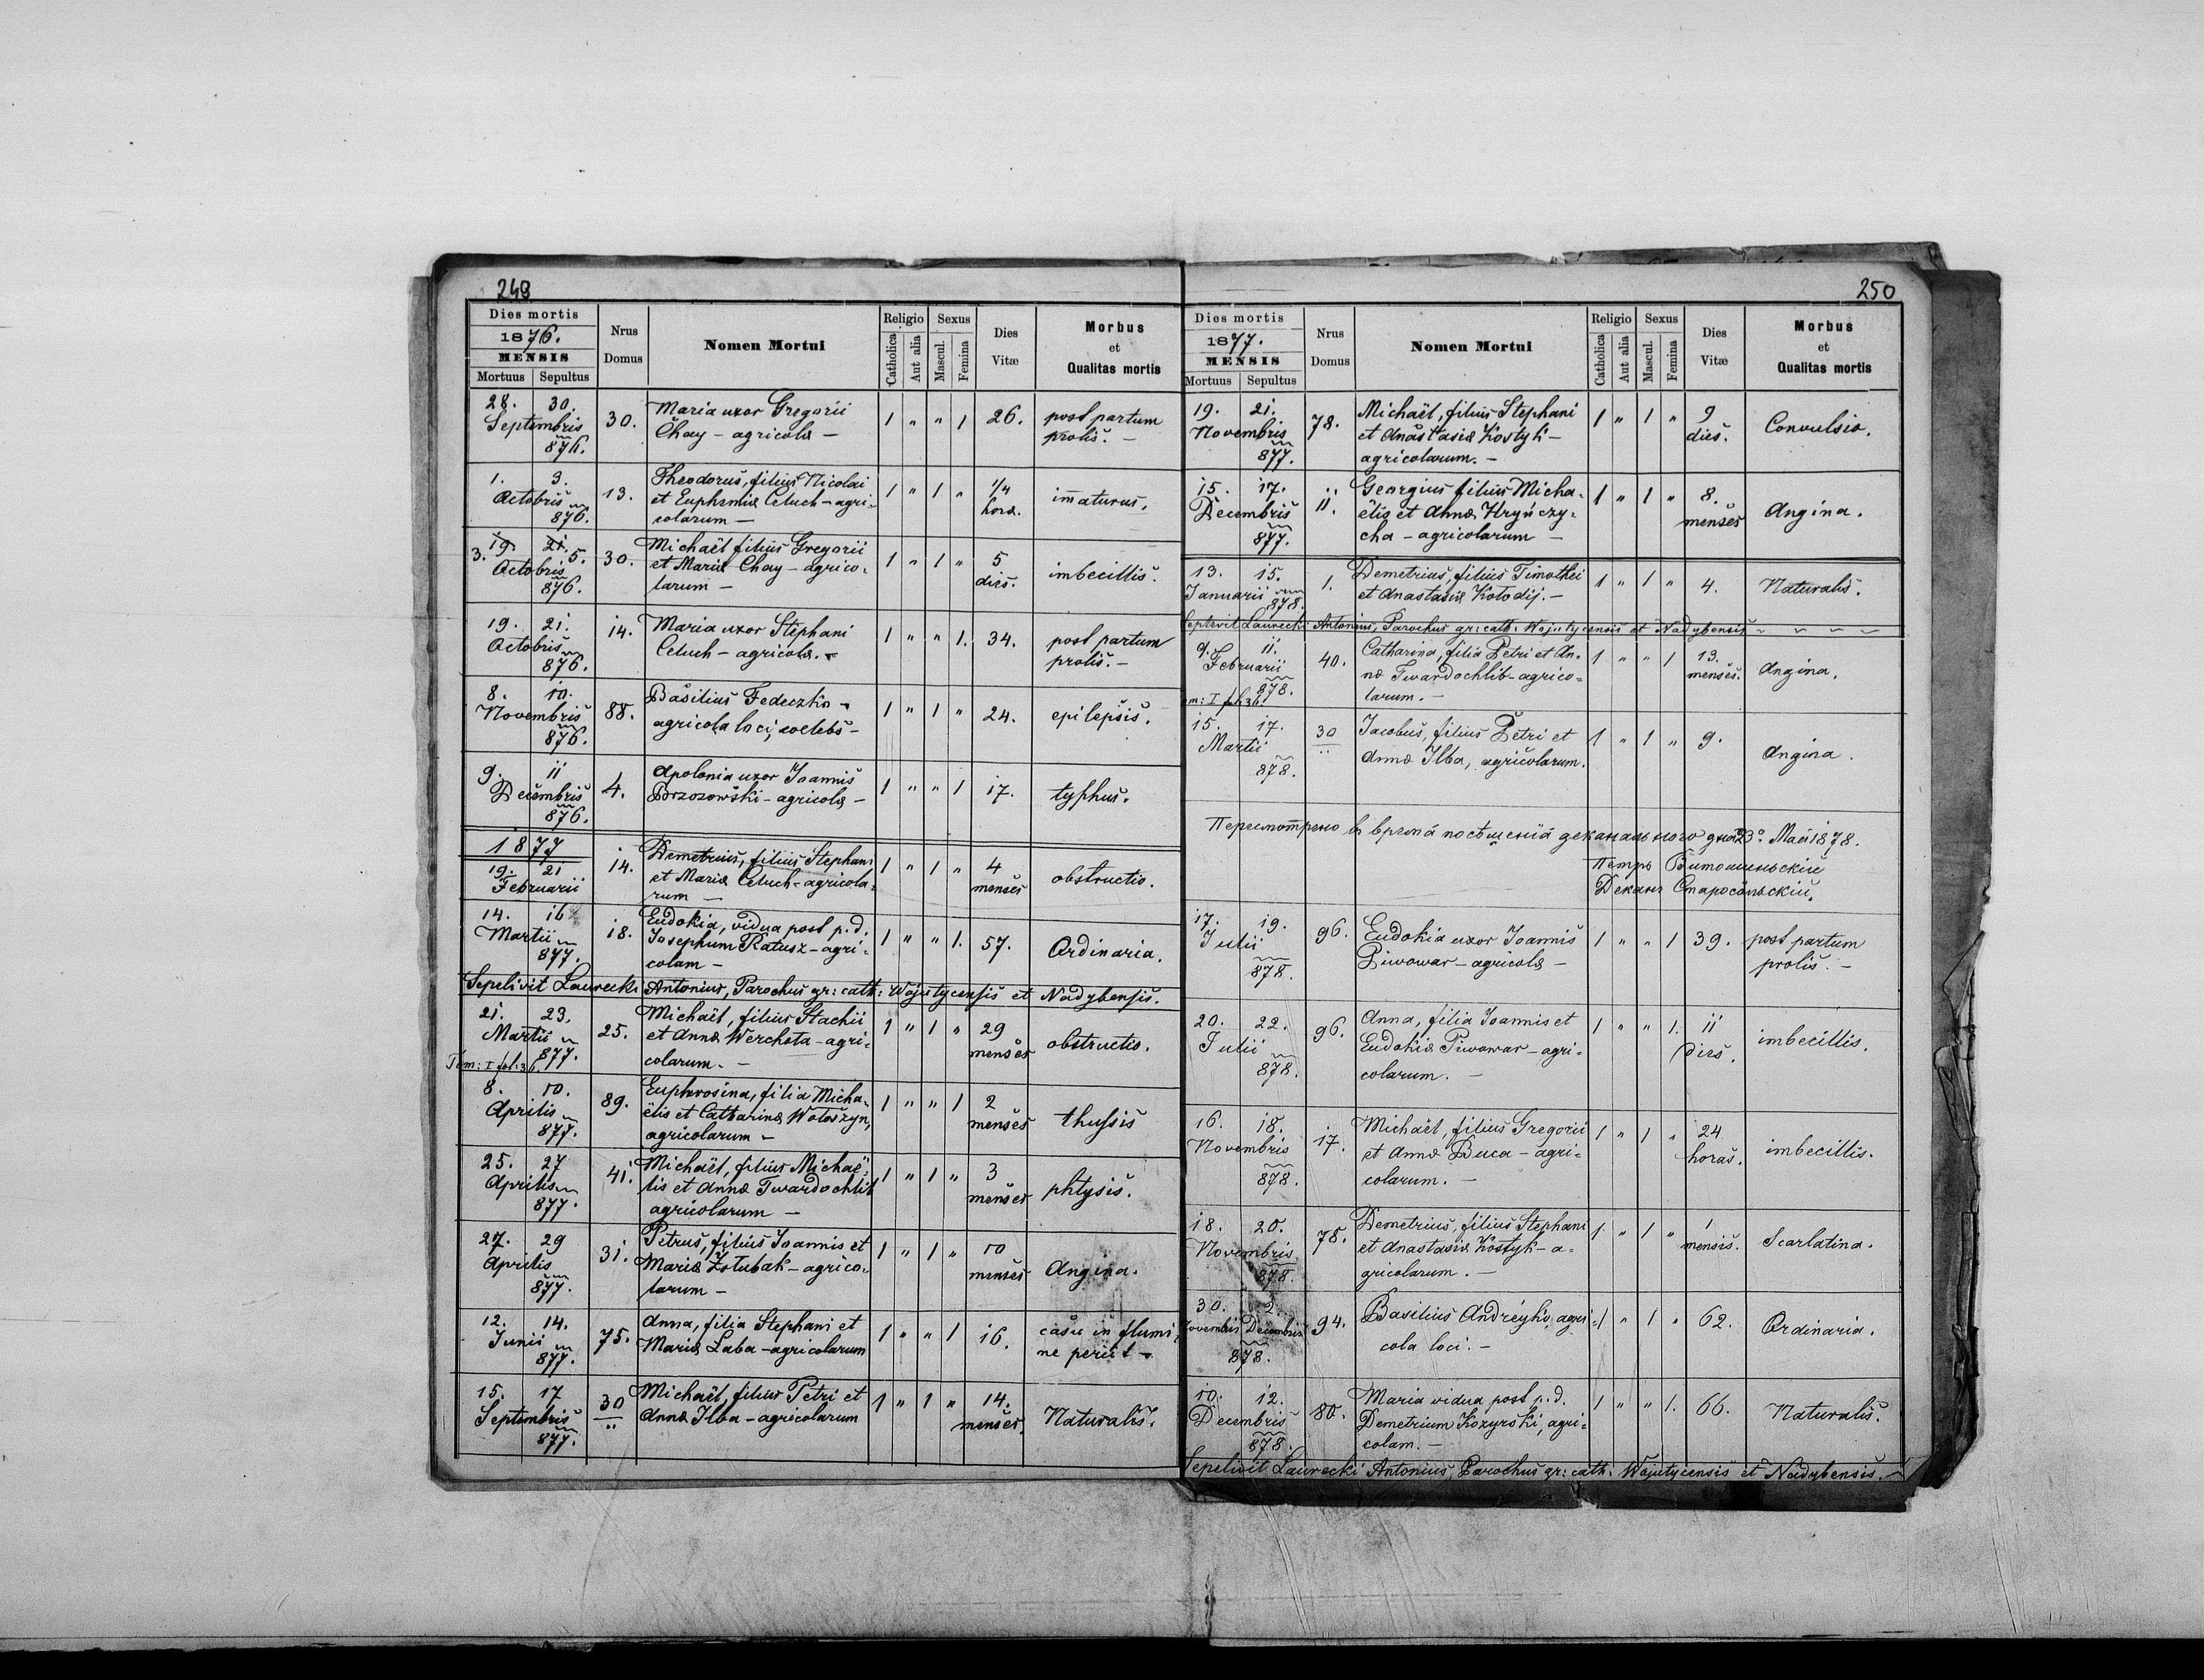 249
Dies mortis
1876.
MENSIS
Mortuus Sepultus
Nrus Domus
Nomen Mortui
Religio
Catholica Aut alia
Sexus
Mascul. Femina
Dies Vitæ
Morbus et Qualitas mortis
28. 30. Septembris 876. 30. Maria uxor Gregorii 1 " " 1 26. post partum
Chay – agricolæ – prolis. –
1. 3. Octobris 876. 13. Theodorus, filius Nicolai 1 " 1 " 1/4 horæ. immaturus.
et Euphemiæ Celuch – agri-
colarum –
19. 21. 3. 5. Octobris 876. 30. Michaël filius Gregorii 1 " 1 " 5 dies. imbecillis.
et Mariæ Chay – agrico-
larum –
19. 21. Octobris 876. 14. Maria uxor Stephani 1 " " 1. 34. post partum
Celuch – agricolæ. prolis. –
8. 10. Novembris 876. 88. Basilius Fedeczko – 1 " 1 " 24. epilepsis.
agricola loci, coelebs –
9. 11 Decembris 876. 4. Apolonia uxor Joannis 1 " " 1 17. typhus.
Brzozowski – agricolæ –
1877
19. 21 Februarii 14. Demetrius, filius Stephani 1 " 1 " 4 menses obstructio.
et Mariæ Celuch – agricola-
rum –
14. 16 Martii 877. 18. Eudokia, vidua post p. d. 1 " " 1. 57. Ordinaria.
Josephum Ratusz – agri-
colam –
Sepelivit Laurecki Antonius, Parochus gr: cath: Wojutycensis et Nadybensis.
21. 23. Martii 877. 25. Michaël, filius Stachii 1 " 1 " 29 menses obstructio.
et Annæ Werchota – agri-
colarum. –
Tom: I fol: 36.
8. 10. Aprilis 877. 89. Euphrosina, filia Micha- 1 " " 1 2 menses thussis
ëlis et Catharinæ Wołoszyn,
agricolarum –
25. 27 Aprilis 877. 41. Michaël, filius Michaë- 1 " 1 " 3 menses phtysis.
lis et Annæ Twardochlib
agricolarum –
27. 29 Aprilis 877. 31. Petrus, filius Joannis et 1 " 1 " 10 menses Angina.
Mariæ Zołubak – agrico-
larum –
12. 14. Junii 877. 75. Anna, filia Stephani et 1 " " 1 16. casu in flumi-
Mariæ Laba – agricolarum ne periit –
15. 17 Septembris 877. 30 Michaël, filius Petri et 1 " 1 " 14. menses. Naturalis.
Annæ Ilba – agricolarum
250
Dies mortis
1877.
MENSIS
Mortuus Sepultus
Nrus Domus
Nomen Mortui
Religio
Catholica Aut alia
Sexus
Mascul. Femina
Dies Vitæ
Morbus et Qualitas mortis
19. 21. Novembris 877. 78. Michaël, filius Stephani 1 " 1 " 9 dies. Convulsio.
et Anastasiæ Kostyk –
agricolarum. –
15. 17. Decembris 877. 11. Georgius filius Micha- 1 " 1 " 8. menses Angina.
ëlis et Annæ Hryńczy-
cha – agricolarum –
13. 15. Januarii 878. 1. Demetrius, filius Timothei 1 " 1 " 4. Naturalis.
et Anastasiæ Kołodij. –
Seplivit Laurecki Antonius, Parochus gr: cath: Wojutycensis et Nadybensis
9. 11. Februarii 878. 40. Catharina, filia Petri et An- 1 " " 1 13. menses. Angina.
næ Twardochlib – agrico-
larum. –
om: I fol: 36.
15. 17. Martii 878. 30 Jacobus, filius Petri et 1 " 1 " 9. Angina.
Annæ Ilba, agricolarum.
Пересмотрено въ время посѣщенія деканального дня 23º Мая 1878.
Петръ
Деканъ Старосольскій.
17. 19. Julii 878. 96. Eudokia uxor Joannis 1 " " 1 39. post partum
Piwowar – agricolæ – prolis. –
20. 22. Julii 878. 96. Anna, filia Joannis et 1 " " 1. 11 dies. imbecillis.
Eudokiæ Piwowar – agri-
colarum. –
16. 18. Novembris 878. 17. Michaël, filius Gregorii 1 " 1 " 24 horas. imbecillis.
et Annæ Buca – agri-
colarum. –
18. 20. Novembris 878. 78. Demetrius, filius Stephani 1. " 1 " 1 mensis. Scarlatina.
et Anastasiæ Kostyk – a-
gricolarum. –
30. 2. Novembis Decembris 878. 94. Basilius Andreyko, agri- 1 " 1 " 62. Ordinaria.
cola loci. –
10. 12. Decembris 878. 80. Maria vidua post p. d. 1 " " 1. 66. Naturalis.
Demetrium Kozyrski, agri-
colam. –
Sepelivit Laurecki Antonius, Parochus gr: cath: Wojutycensis et Nadybensis. –